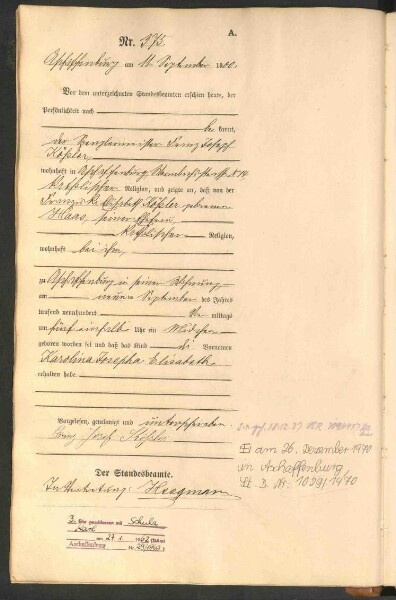 A.
Nr. 375.
Aschaffenburg am 11. September 1900.
Vor dem unterzeichneten Standesbeamten erschien heute, der
Persönlichkeit nach
be kannt,
der Spenglermeister Franz Josef
Kößler,
wohnhaft in Aschaffenburg,
katholischer Religion, und zeigte an, daß von der
Elisabeth Kößler geborenen
Haas, seiner Ehefrau,
katholischer Religion,
wohnhaft bei ihm,
zu Aschaffenburg in seiner Wohnung
am neunten September des Jahres
tausend neunhundert Vor mittags
um fünf einhalb Uhr ein Mädchen
geboren worden sei und daß das Kind die Vornamen
Karolina Josepha Elisabetha
erhalten habe.
Vorgelesen, genehmigt und unterschrieben
Franz Josef Kößler
Der Standesbeamte.
In Vertretung:
† am 26. Dezember 1970
in Aschaffenburg
St. B. Nr. 1029/1970
Schulz
Karl
am 27.1.
Aschaffenburg